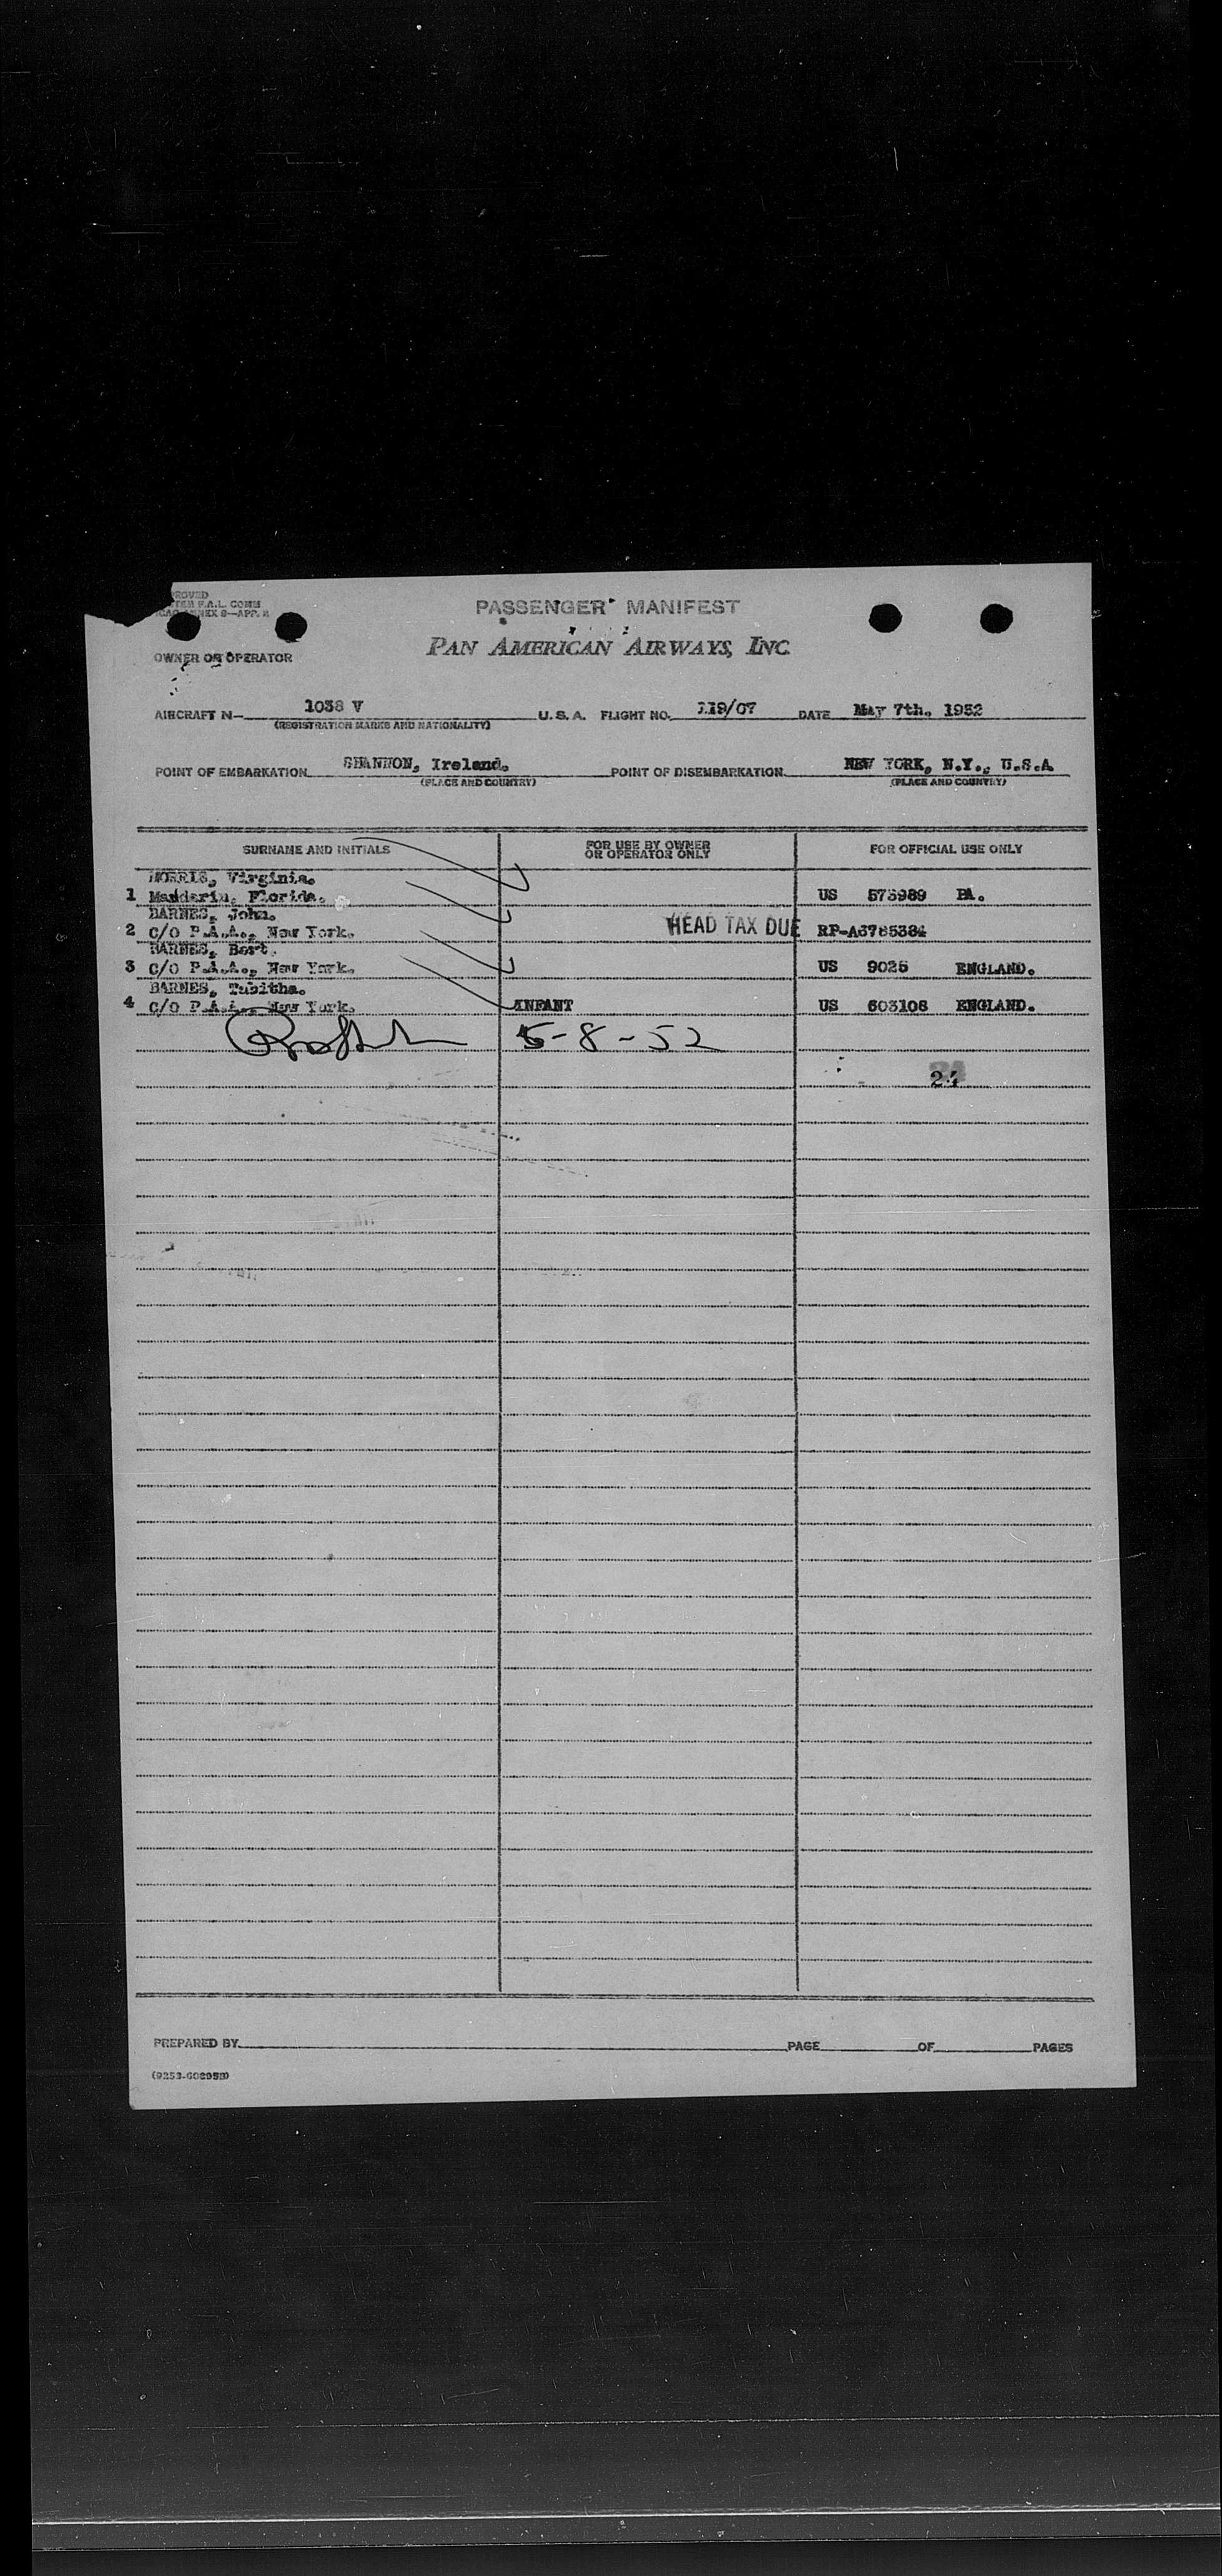 PASSENGER MANIFEST
PAN AMERICAN AIRWAYS, INC.
OWNER OR OPERATOR
AIRCRAFT N— 1038 V U.S.A. FLIGHT NO. 119/07 DATE May 7th, 1952
(REGISTRATION MARKS AND NATIONALITY)
POINT OF EMBARKATION SHANNON, Ireland. POINT OF DISEMBARKATION NEW YORK, N.Y., U.S.A
(PLACE AND COUNTRY) (PLACE AND COUNTRY)
SURNAME AND INITIALS FOR USE BY OWNER OR OPERATOR ONLY FOR OFFICIAL USE ONLY
MORRIS, Virginia.
1 Mandarin, Florida. US 573989 PA.
BARNES, John.
2 C/O P.A.A., New York. HEAD TAX DUE RP-A6785384
BARNES, Bert.
3 C/O P.A.A., New York. US 9025 ENGLAND.
BARNES, Tabitha.
4 C/O P.A.A., New York. INFANT US 603108 ENGLAND.
5-8-52
24
PREPARED BY PAGE OF PAGES